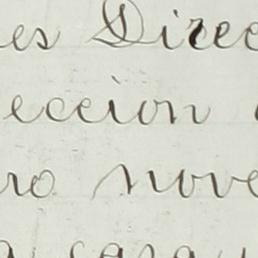 es Direc
eccion
ro nove